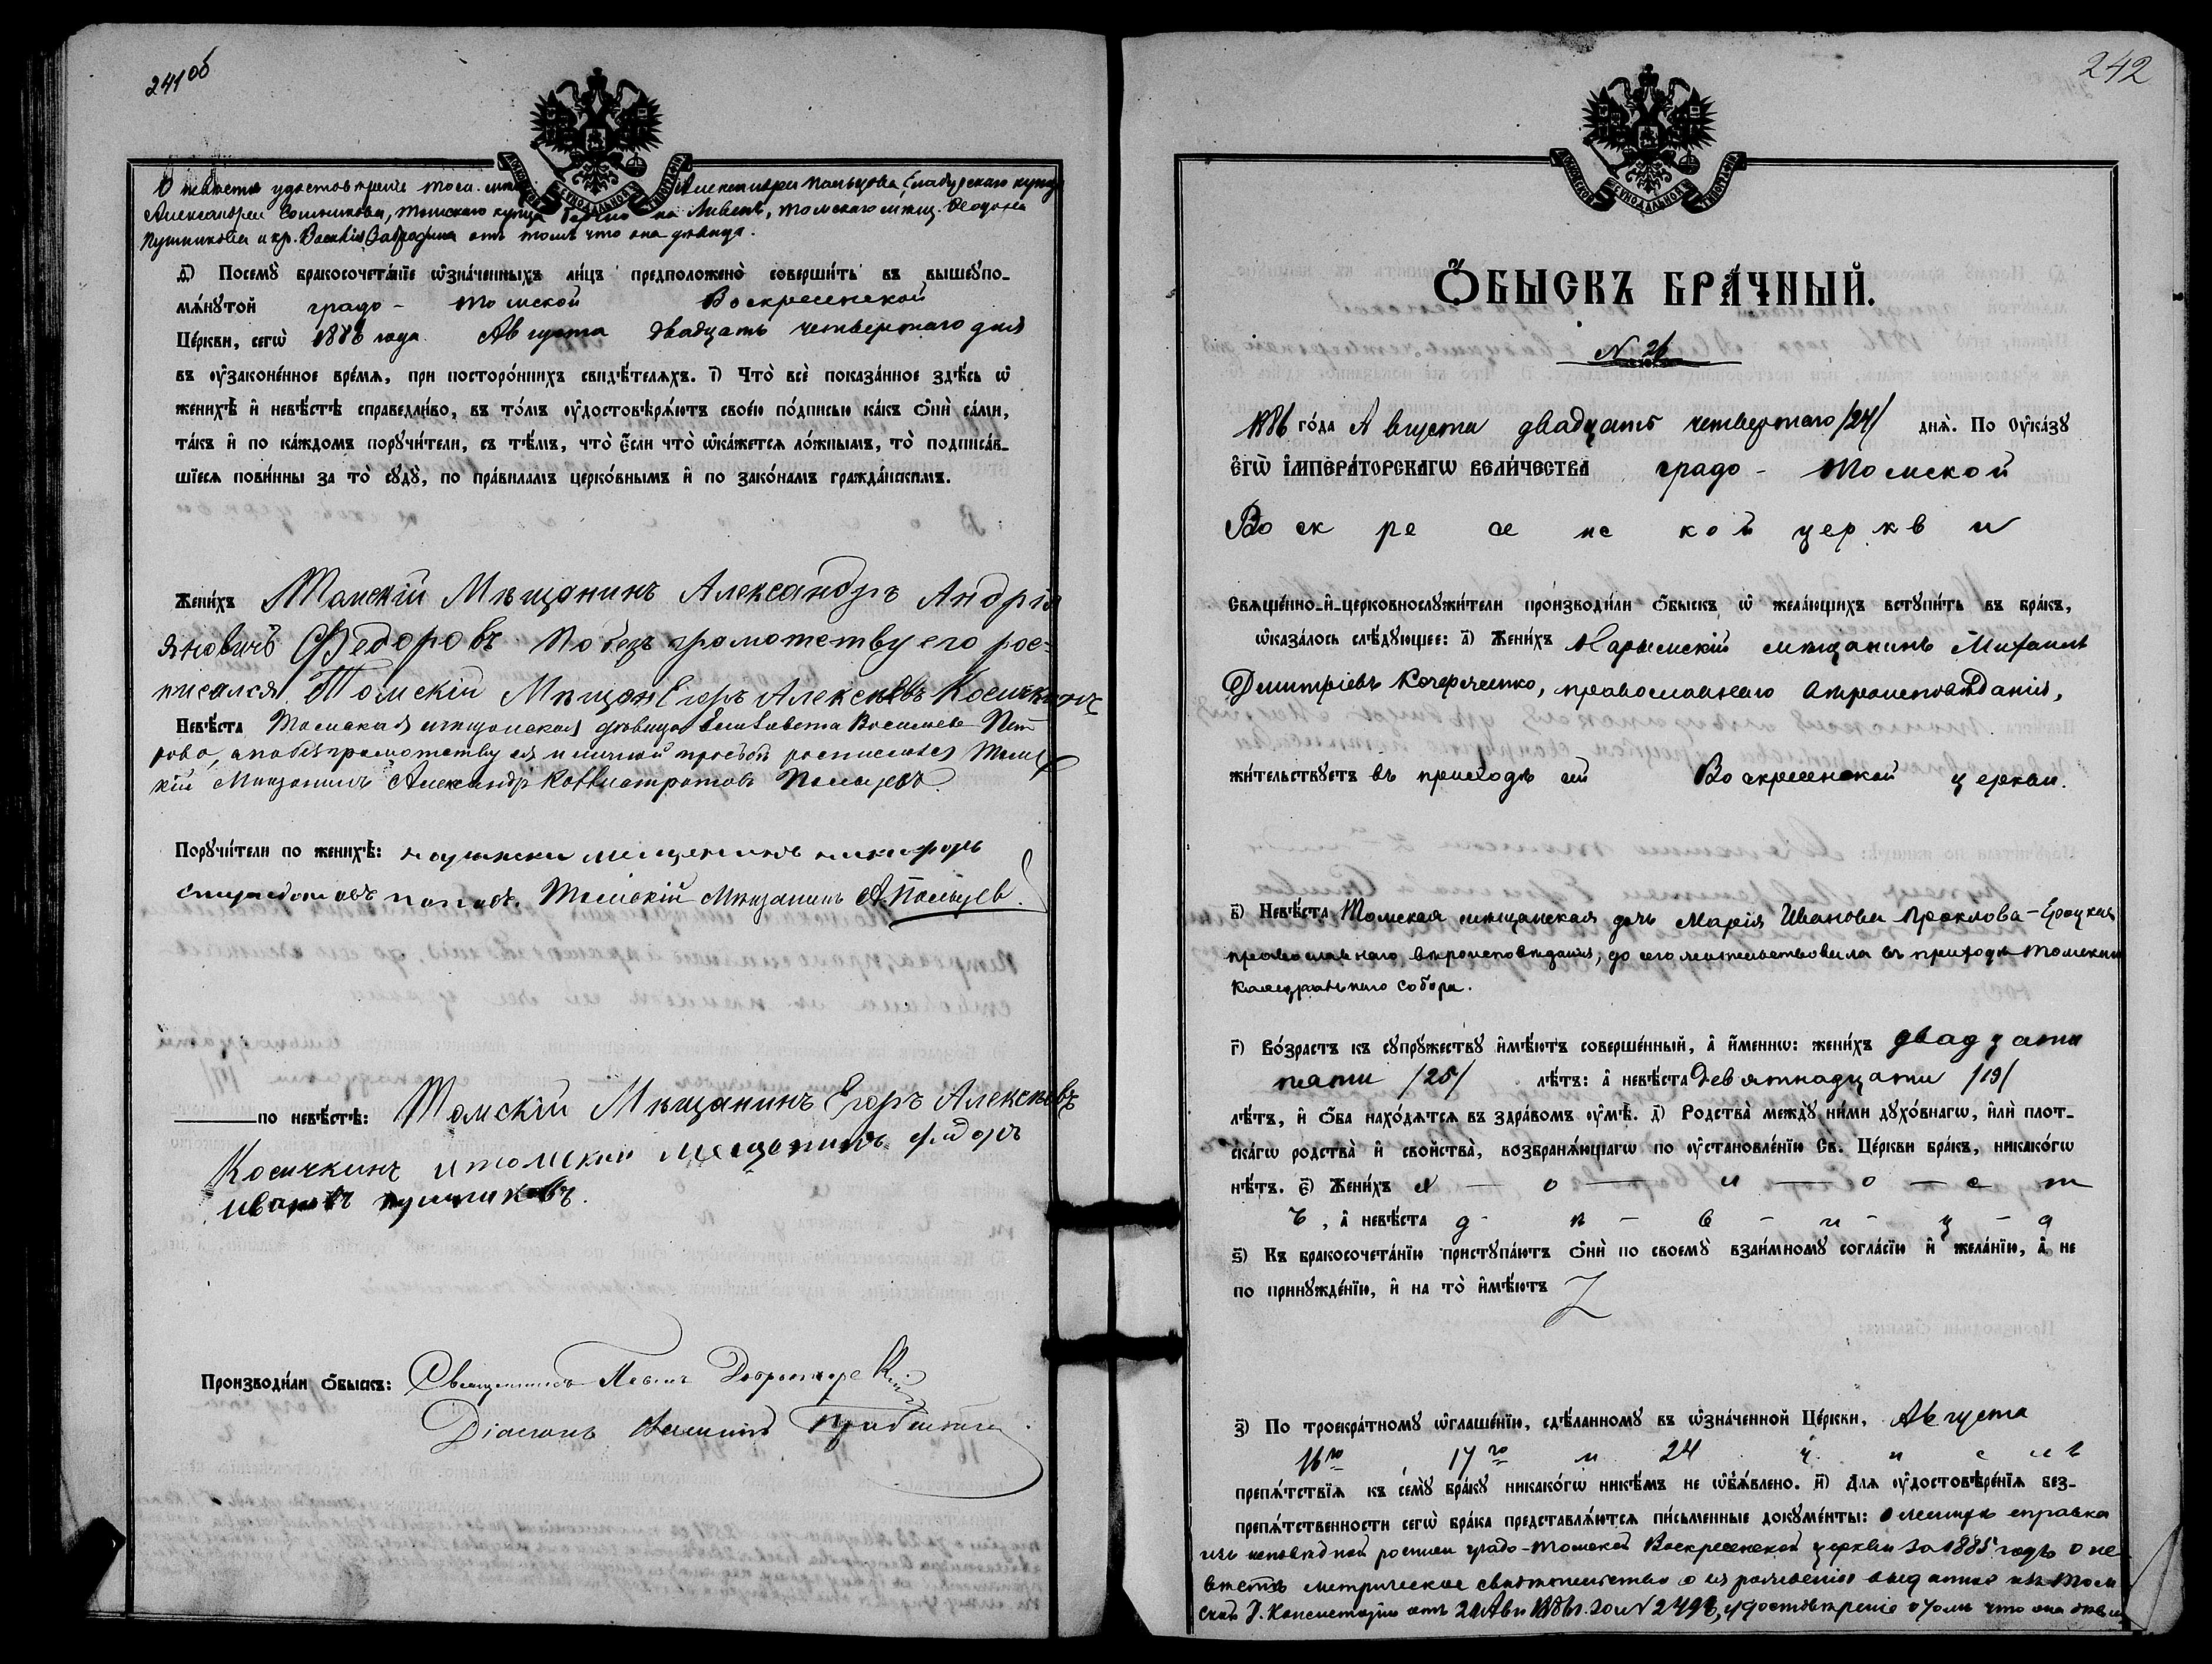 241об
О невесте удостовѣреніе Александра Пальцова, Елабужскаго купца
Александра Сотникова, Томскаго купца Томскаго мѣщ. Ѳедора
Пушникова и кр. Василія отъ томъ что она дѣвица.
д҃) Посемꙋ̀ бракосочета́нїе ѡ҆зна́ченныхъ ли́цъ предположено̀ соверши́ть въ вышеꙋпо-
мѧ́нꙋтой градо- Томской Воскресенской
Це́ркви, сегѡ̀ 1886 года Августа двадцать четвертаго дня
въ ᲂу҆зако́не́нное вре́мѧ, при посторо́ннихъ свидѣ́телѧхъ. і҃) Что̀ всѐ пока́занное здѣ́сь ѡ҆
женихѣ̀ и҆ невѣ́стѣ справедли́во, въ то́мъ ᲂу҆достовѣрѧ́ютъ свое́ю по́дписью ка́къ ѻ҆нѝ са́ми,
та́къ и҆ по ка́ждомъ порꙋчи́тели, съ тѣ́мъ, что̀ є҆́сли что̀ ѡ҆ка́жетсѧ ло́жнымъ, то̀ подписа́в-
шїесѧ пови́нны за то̀ сꙋдꙋ̀, по пра́виламъ церко́внымъ и҆ по зако́намъ гражда́нскимъ.
Жени́хъ Томскій Мѣщанинъ Александръ Андрія
яновичъ Федоровъ по безграмотству его рос-
писался Томскій Мѣщан Егоръ Алексѣевъ Косичкинъ
Невѣ́ста Томская мѣщанская дѣвица Елизавета Васильева Пет
рова, а по безграмотству ея и личной прозбѣ росписался Томс
кій Мѣщанинъ Александръ Пальцевъ
Порꙋчи́тели по женихѣ̀: мещенинъ никифоръ
поповъ. Томскій Мѣщанинъ А. Пальцев.
по невѣ́стѣ: Томскій Мѣщанинъ Егоръ Алексѣевъ
Косичкинъ и томскии мещенинъ федоръ
ивановъ пушниковъ.
Производи́ли ѻ҆́быскъ: Священникъ
Діаконъ
242
Ѻ҆́БЫСКЪ БРА́ЧНЫЙ.
N 26
1886 го́да Августа двадцать четвертаго /24/ днѧ̀. По Оу҆ка́зꙋ
Є҆гѡ̀ І҆мпера́торскагѡ вели́чества градо- Томской
Во ск ре се нс кой церкв и
Свѧще́нно-и҆-церковнослꙋжи́тели произво́дили ѻ҆́быскъ ѡ҆ жела́ющихъ встꙋпи́ть въ бра́къ,
ѡ҆каза́лось слѣ́дꙋющее: а҃) Жени́хъ Нарымскій мѣщанинъ Михаилъ
Дмитріевъ Кочерженко, православнаго вѣроисповѣданія,
жи́тельствꙋетъ въ приходѣ сей Воскресенской церкви.
в҃) Невѣ́ста Томская мѣщанская дочь Марія Иванова Проклова-
православнаго вѣроисповѣданія, до сего жительствовала въ приходѣ Томскаго
Каѳедральнаго Собора.
г҃) Во́зрастъ къ сꙋпрꙋ́жествꙋ и҆мѣ́ютъ соверше́нный, а҆ и҆́меннѡ: жени́хъ двадцати
пяти /25/ лѣ́тъ: а҆ невѣ́ста Девятнадцати /19/
лѣ́тъ, и҆ ѻ҆́ба нахо́дѧтсѧ въ здра́вомъ ᲂу҆мѣ̀. д҃) Родства̀ междꙋ̀ ни́ми дꙋхо́внагѡ, и҆лѝ плот-
ска́гѡ родства̀ и҆ сво́йства̀, возбранѧ́ющагѡ по ᲂу҆становле́нїю Св. Це́ркви бра́къ, никако́гѡ
нѣ́тъ. є҃) Жени́хъ х — о — л — о — с — т
ъ, а҆ невѣ́ста д - ѣ - в - и - ц - а
ѕ҃) Къ бракосочета́нїю пристꙋпа́ютъ ѻ҆нѝ по своемꙋ̀ взаи́мномꙋ согла́сїю и҆ жела́нїю, а҆ не
по принꙋжде́нїю, и҆ на то̀ и҆мѣ́ютъ Z
з҃) По троекра́тномꙋ ѡ҆глаше́нїю, сдѣ́ланномꙋ въ ѡ҆зна́ченной Це́ркви, Августа
16го, 17го и 24 ч и с л ъ
препѧ́тствїѧ къ семꙋ̀ бра́кꙋ никако́гѡ никѣ́мъ не ѡ҆б̾ѧ́влено. и҃) Длѧ ᲂу҆достовѣре́нїѧ без-
препѧ́тственности сегѡ̀ бра́ка представлѧ́ютсѧ пи́сьменные докꙋме́нты: о женихѣ справка
изъ исповѣдной росписи градо-Томской Воскресенской церкви за 1885 годъ о не
вѣстѣ метрическое свидѣтельство о ея рожденіи выданное изъ Том
ской Д. Консисторіи отъ 20 Авг. 1886 г. за N удостовѣреніе о томъ что она